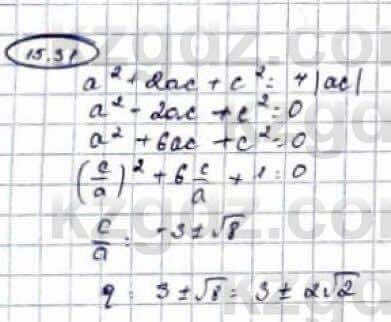 15.31
a² + 2ac + c² = 4|ac|
a² - 2ac + c² = 0
a² + 6ac + c² = 0
(c/a)² + 6 c/a + 1 = 0
c/a = -3 ± √8
q = 3 ± √8 = 3 ± 2√2